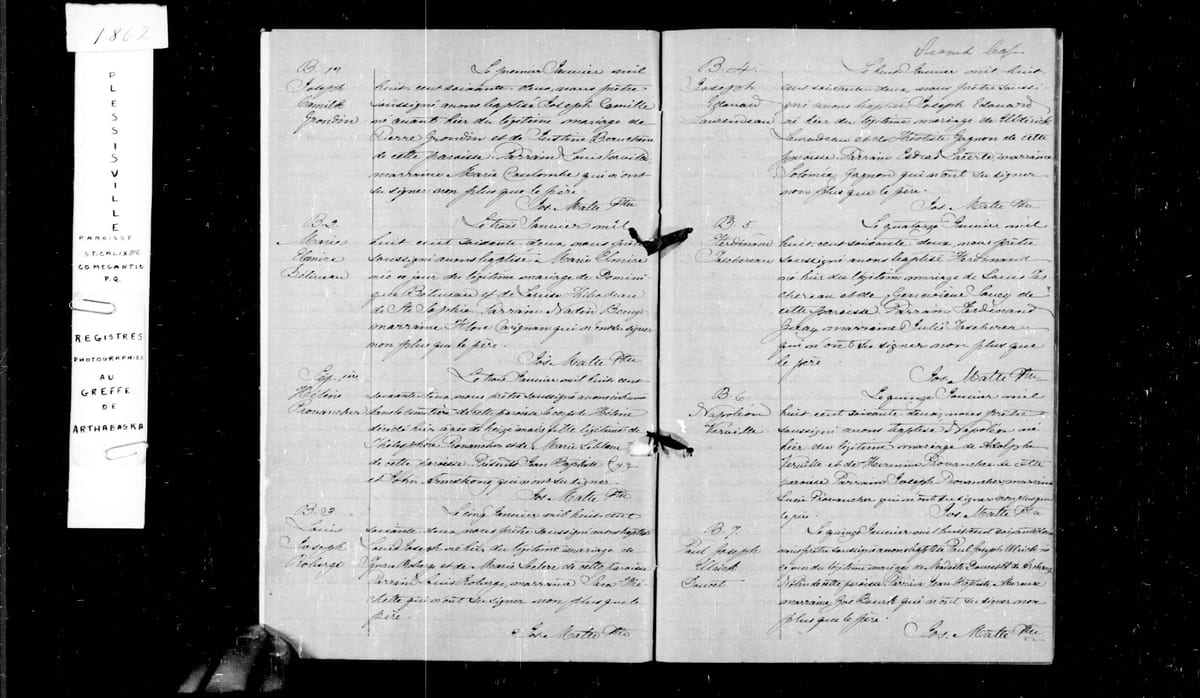 1862
PLESSISVILLE
PAROISSE
ST. CALIXTE
CO. MEGANTIC
P.Q.
REGISTRES
PHOTOGRAPHIES
AU
GREFFE
DE
ARTHABASKA
B. 1er
Joseph
Camille
Grondin
Le premier Janvier mil
huit cent soixante deux, nous prêtre
soussigné avons baptisé Joseph Camille
né avant hier du légitime mariage de
Pierre Grondin et de
de cette paroisse. Parrain Louis Verville
marraine Marie Coulombe qui n'ont
su signer non plus que le père.
Jos. Matte Ptre
B. 2.
Marie
Elmire
Béliveau
Le trois Janvier mil
huit cent soixante deux nous prêtre
soussigné avons baptisé Marie Elmire
née ce jour du légitime mariage de Domini
que Béliveau et de Louise Thibodeau
de Ste Sophie Parrain
marraine Carignan qui n'ont su signer
non plus que le père.
Jos. Matte Ptre
Sép. 1ère
Hélène
Provancher
Le trois Janvier mil huit cent
soixante deux, nous prêtre soussigné avons inhumé
dans le cimetière de cette paroisse le corps de Hélène
décédée hier agée de seize mois fille légitime de
Théléphore Provancher et de Marie Leblanc
de cette paroisse Présents Jean Baptiste
et John Armstrong qui n'ont su signer.
Jos. Matte Ptre
B. 3
Louis
Joseph
Roberge
Le cinq Janvier mil huit cent
soixante deux, nous prêtre soussigné avons baptisé
Louis Joseph né hier du légitime mariage de
Ignace Roberge et de Marie Leclerc de cette paroisse
Parrain Louis Roberge marraine
qui n'ont su signer non plus que le
père.
Jos. Matte Ptre
Second
B. 4.
Joseph
Edouard
Laurendeau
Le huit Janvier mil huit
cent soixante deux, nous prêtre soussi-
gné avons baptisé Joseph Edouard
né hier du légitime mariage de Ulderick
Laurendeau et de Gagnon de cette
paroisse Parrain Lacerte marraine
Gagnon qui n'ont su signer
non plus que le père.
Jos. Matte Ptre
B. 5.
Ferdinand
Le quatorze Janvier mil
huit cent soixante deux, nous prêtre
soussigné avons baptisé Ferdinand
né hier du légitime mariage de Louis Tas
chereau et de Geneviève Soucy de
cette paroisse Parrain Ferdinand
marraine Julie Taschereau
qui n'ont su signer non plus que
le père
Jos. Matte Ptre
B. 6.
Napoléon
Verville
Le quinze Janvier mil
huit cent soixante deux, nous prêtre
soussigné avons baptisé Napoléon né
hier du légitime mariage de Adolphe
Verville et de Hermine Provancher de cette
paroisse Parrain Joseph Provancher marraine
Lucie Provancher qui n'ont su signer non plus que
le père.
Jos. Matte Ptre
B. 7.
Paul Joseph
Ulrick
Le quinze Janvier mil huit cent soixante deux
nous prêtre soussigné avons baptisé Paul Joseph Ulrick né
ce jour du légitime mariage de
de cette paroisse Parrain Jean Baptiste
marraine qui n'ont su signer non
plus que le père.
Jos. Matte Ptre